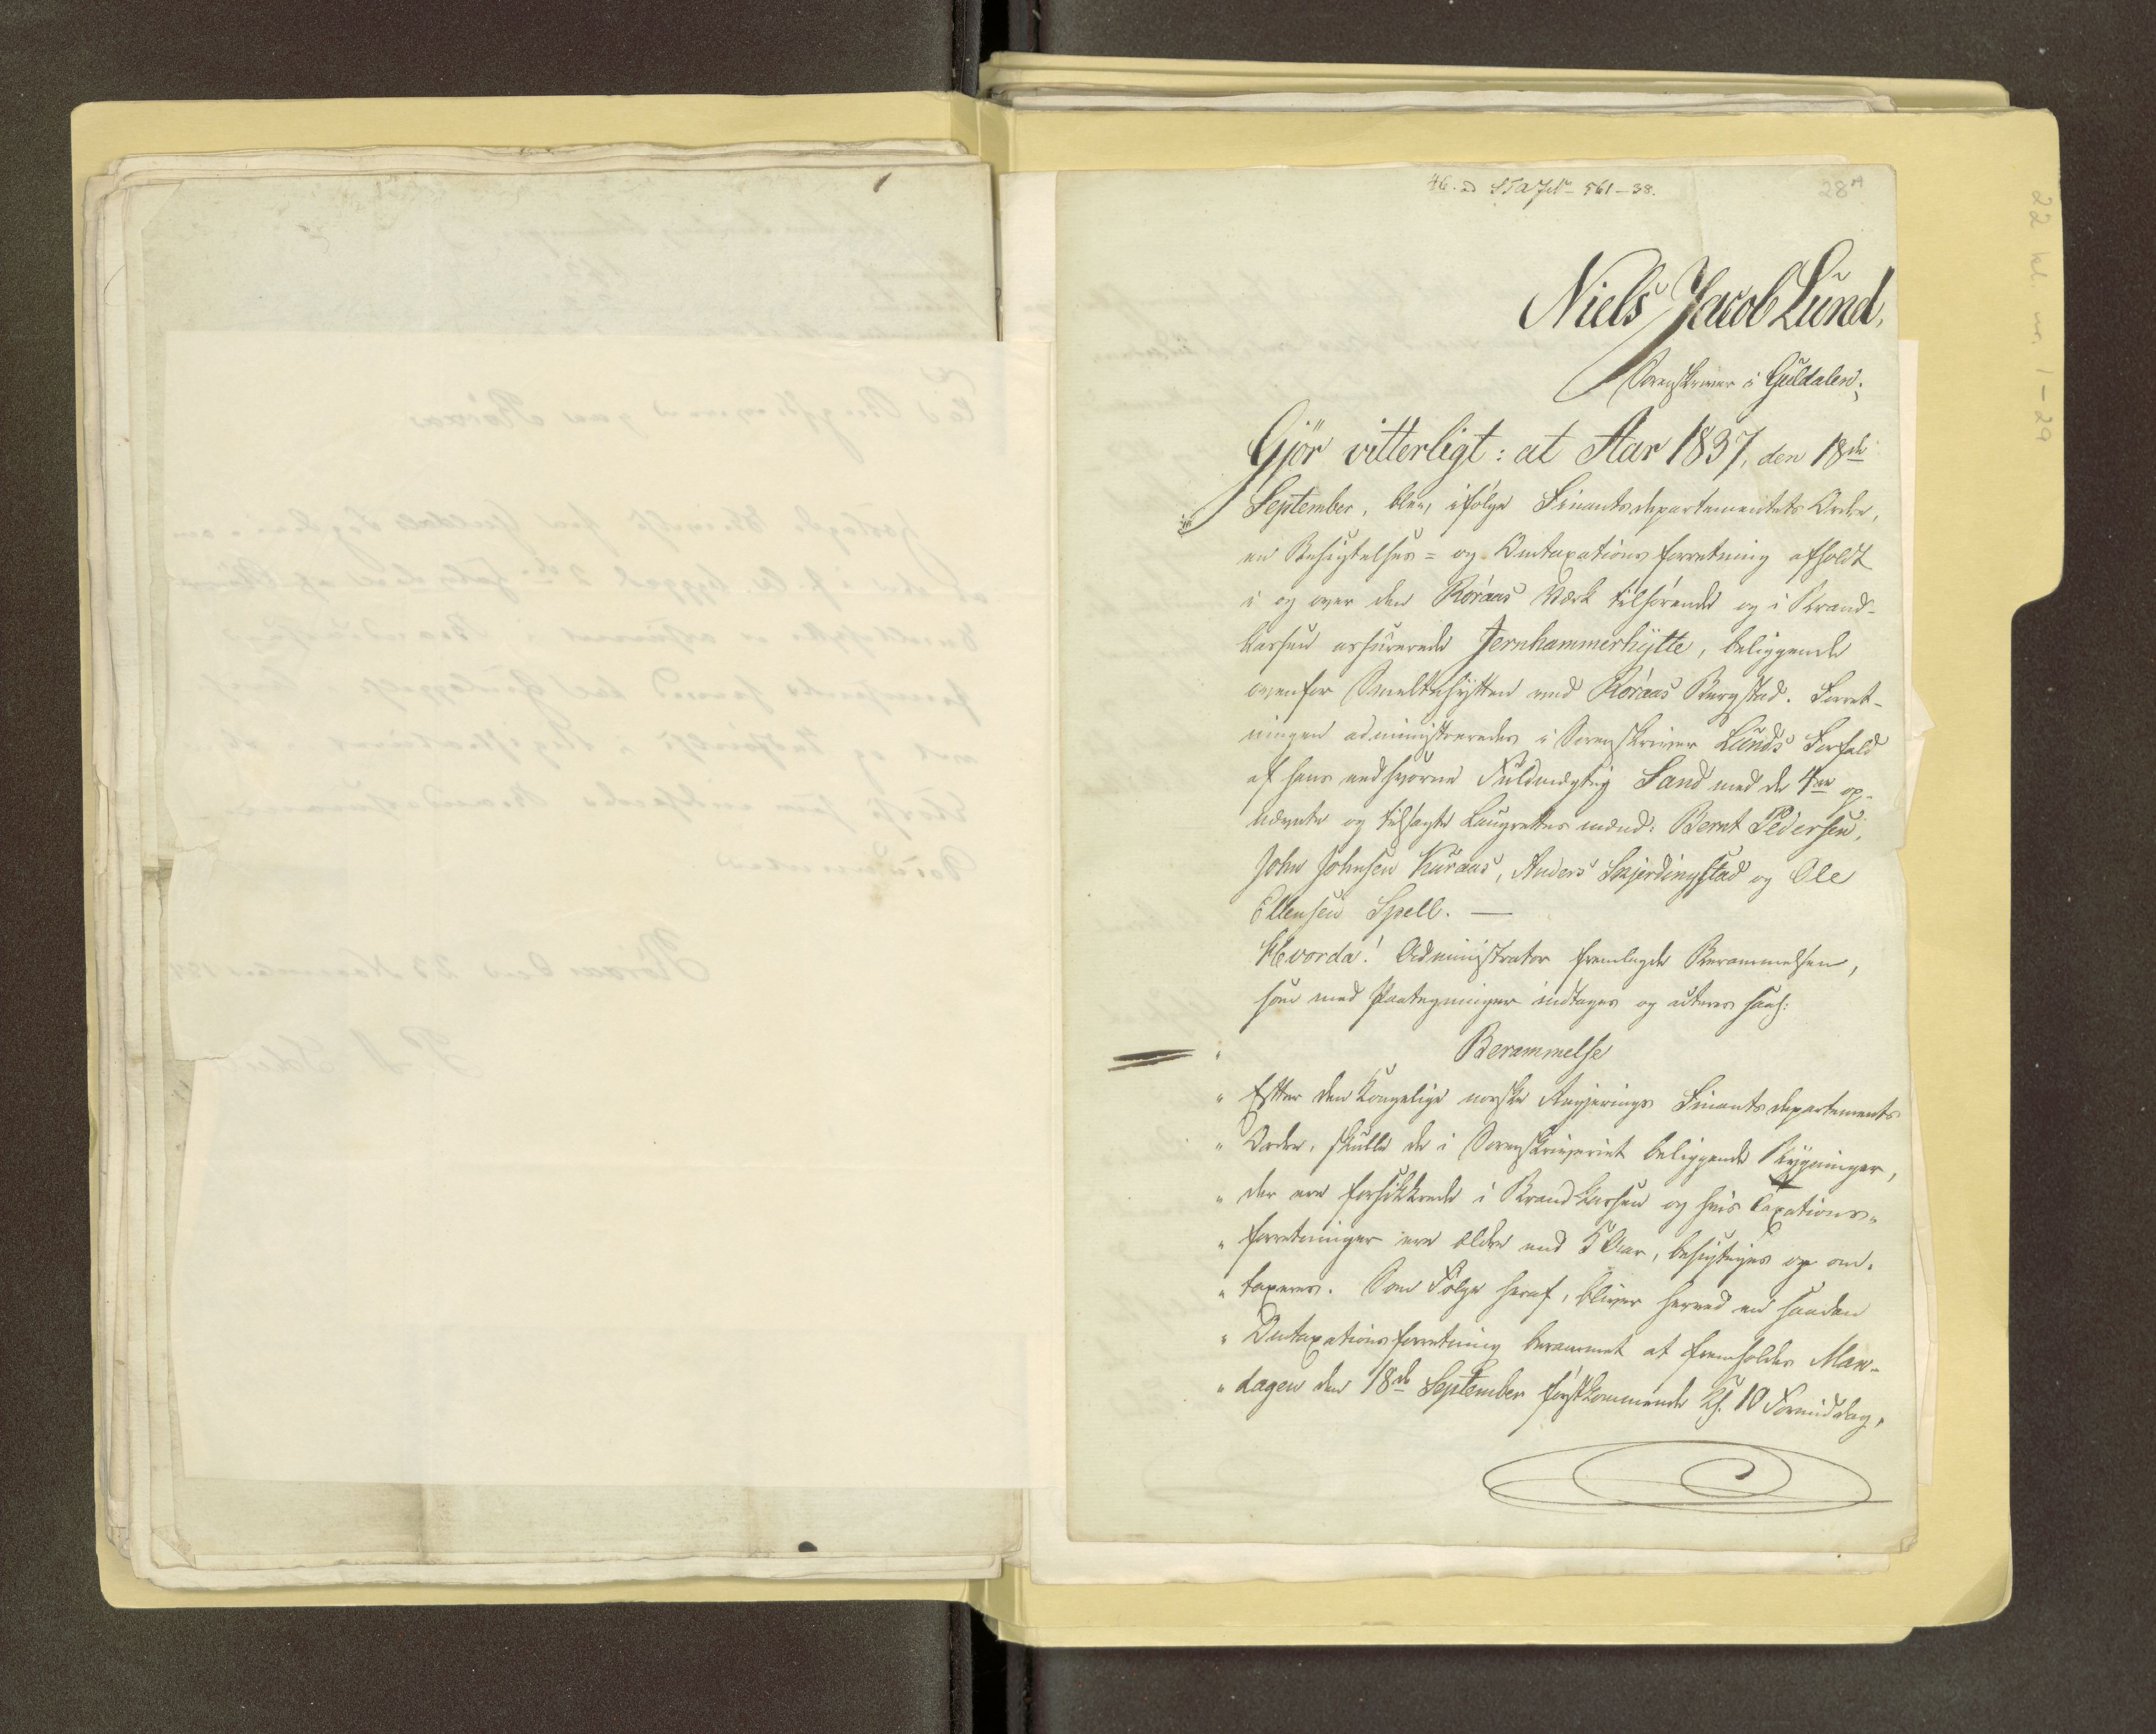 28 A
Niels Jacob Lund,
Sorenskriver i Guldalen;
Gjör vitterligt: at Aar 1837, den 18de
September, blev, ifølge Finantsdepartementets Ordre,
en Besigtelses- og Omtaxationsforretning afholdt
i og over den Röraas Værk tilhörende og i Brand-
kassen assurerede Jernhammerhytte, beliggende
ovenfor Smeltehytten ved Röraas Bergstad. Forret-
ningen administreredes i Sorenskriver Lunds Forfald
af hans edsvorne Fuldmægtig Sand med de 4re op-
nævnte og tilsagte Laugrettesmænd: Bernt Pedersen,
John Johnsen Kuraas, Anders Skjerdingstad og Ole
Ellensen Spell. —
Hvorda! Administrator fremlagde Berammelsen,
som med Paategninger indtages og acteres saal:
Berammelse
" Efter den Kongelige norske Regjerings Finantsdepartements
" Ordre, skulle de i Sorenskriveriet beliggende Bygninger,
" der ere forsikkrede i Brandkassen og hvis Taxations-
" forretninger ere ældre end 5 Aar, besigtiges og om-
" taxeres. Som Følge heraf, bliver herved en saadan
" Omtaxationsforretning berammet at fremholdes Man-
" dagen den 18de September førstkommende Kl. 10 Formiddag,
22 kl. nr. 1-29